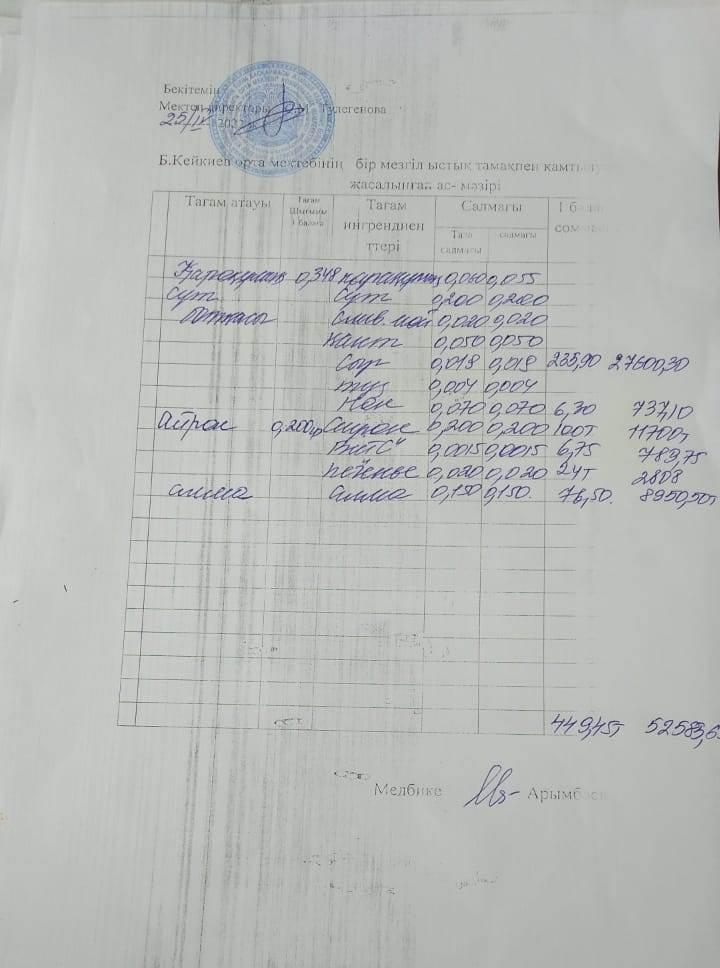 Бекітемін
Мектеп директоры Тулегенова
25/IV 202
Б.Кейкиев орта мектебінің бір мезгіл ыстық тамақпен қамтылу
жасалынған ас- мәзірі
Тағам атауы Тағам Шығымы 1 балаға Тағам ингредиен ттері Салмағы 1 бала сомма
Таза салмағы салмағы
Қарақұмық 0,348 қарақұмық 0,060 0,055
сүт Сүт 0,200 0,200
ботқасы Слив. май 0,020 0,020
Кант 0,050 0,050
Сыр 0,018 0,018 235,90 27600,30
тұз 0,004 0,004
Нан 0,070 0,070 6,30 737,10
Айран 0,200гр 0,200 0,200 100т 11700т
Вит "С" 0,0015 0,0015 6,75 789,75
печенье 0,020 0,020 24т 2808
алма алма 0,150 0,150. 76,50. 8950,50т
449,45т 52583,6
Медбике Арымб